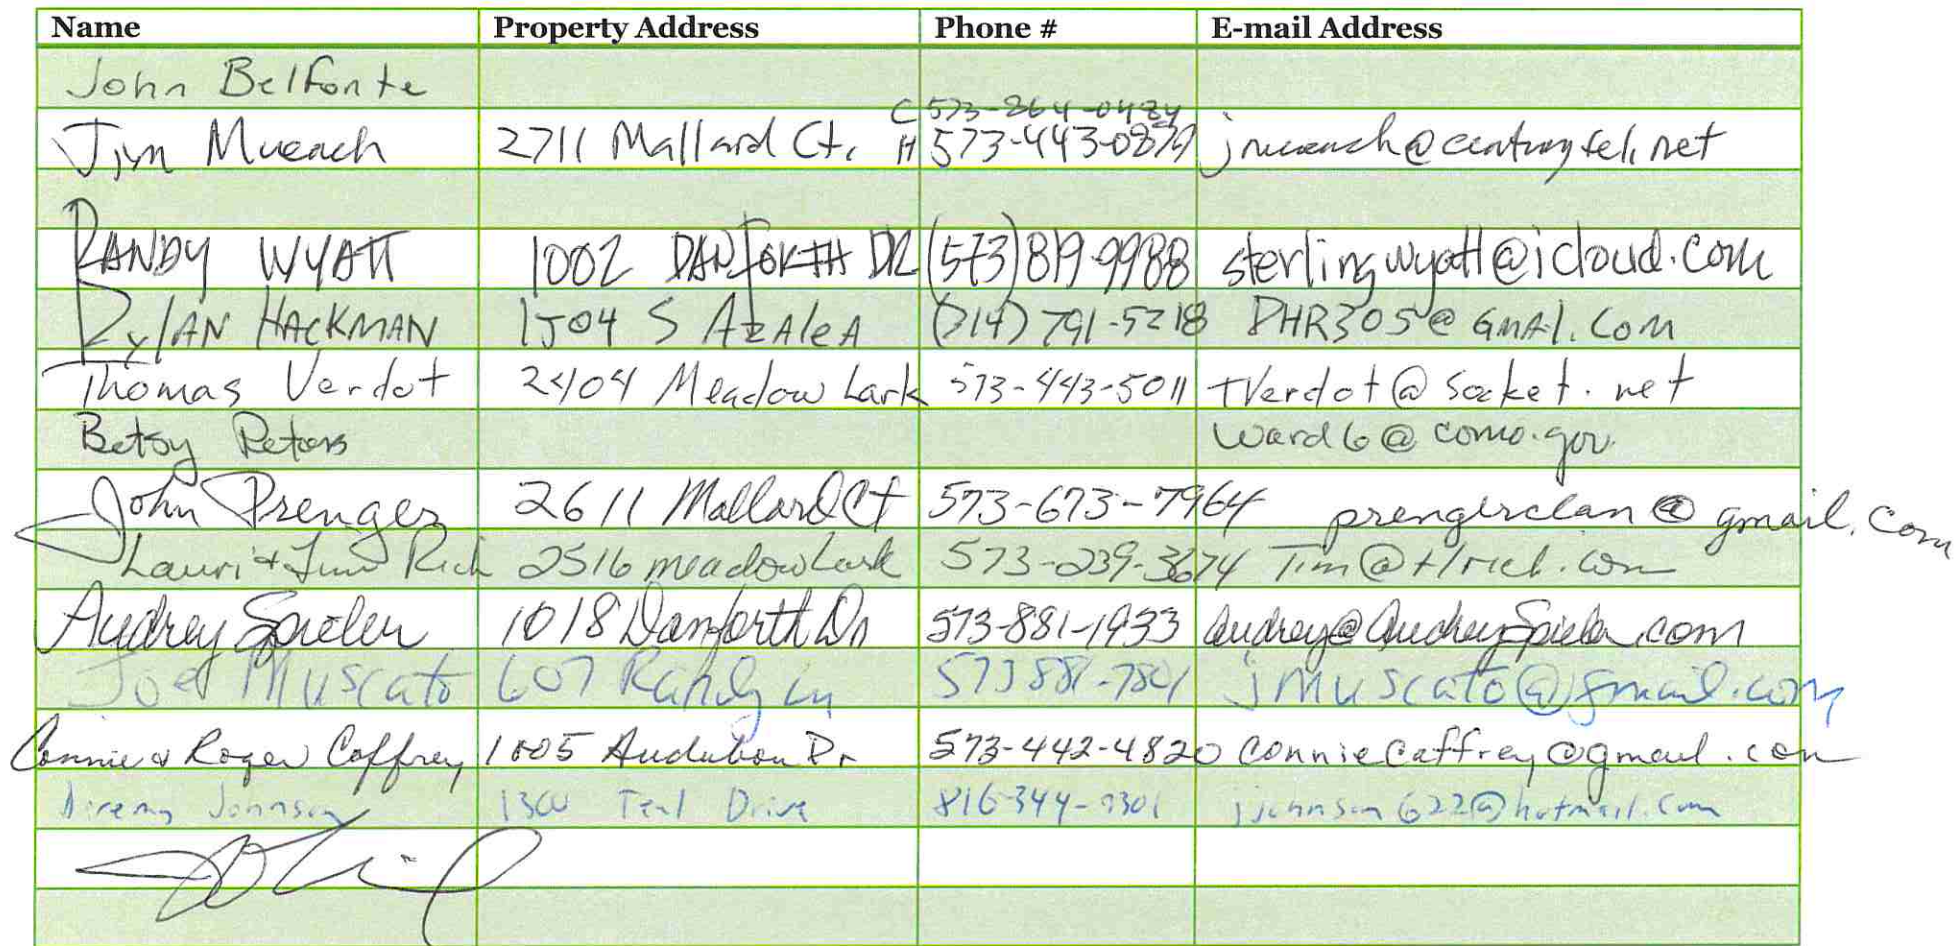 Name Property Address Phone # E-mail Address
John Belfonte
C 573-864-0484
Jim Mueach 2711 Mallard Ct. H 573-443-0879 @centurytel.net
RANDY WYATT 1002 DANFORTH DR (573) 819-9988 sterlingwyatt@icloud.com
RylAN HACKMAN 1504 S AzAleA (714) 791-5218 DHR305@GmAl.Com
Thomas Verdot 2404 Meadow Lark 573-443-5011 TVerdot@Socket.net
Betsy Peters Ward6@como.gov
John Prenger 2611 Mallard Ct 573-673-7964 prengerclan@gmail.com
Lauri + Tim Rich 2516 meadow Lark 573-239-3674 Tim@tlrich.com
Audrey Spieler 1018 Danforth Dr 573-881-1933 Audrey@AudreySpieler.com
Joe Muscato 607 Randy Ln 573 881-7801 jmuscato@gmail.com
Connie & Roger Caffrey 1005 Audubon Dr 573-442-4820 conniecaffrey@gmail.com
Jeremy Johnson 1300 Teal Drive 816-344- jjohnson622@hotmail.com